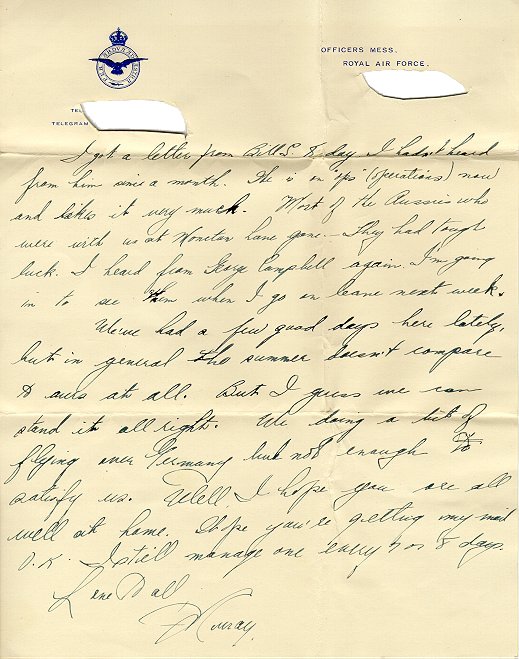 OFFICERS MESS.
ROYAL AIR FORCE.
PER ARDUA AD ASTRA
TEL
TELEGRAM
I got a letter from Bill S. today I hadn't heard
from him since a month. He is on "ops" (operations) now
and likes it very much. Most of the Aussies who
were with us at have gone. – They had tough
luck. I heard from George Campbell again. I'm going
in to see them when I go on leave next week.
We've had a few good days here lately,
but in general the summer doesn't compare
to ours at all. But I guess we can
stand it all right. We doing a bit of
flying over Germany but not enough to
satisfy us. Well I hope you are all
well at home. Hope you're getting my mail
O.K. I still manage one every 7 or 8 days.
Love to all
Murray.